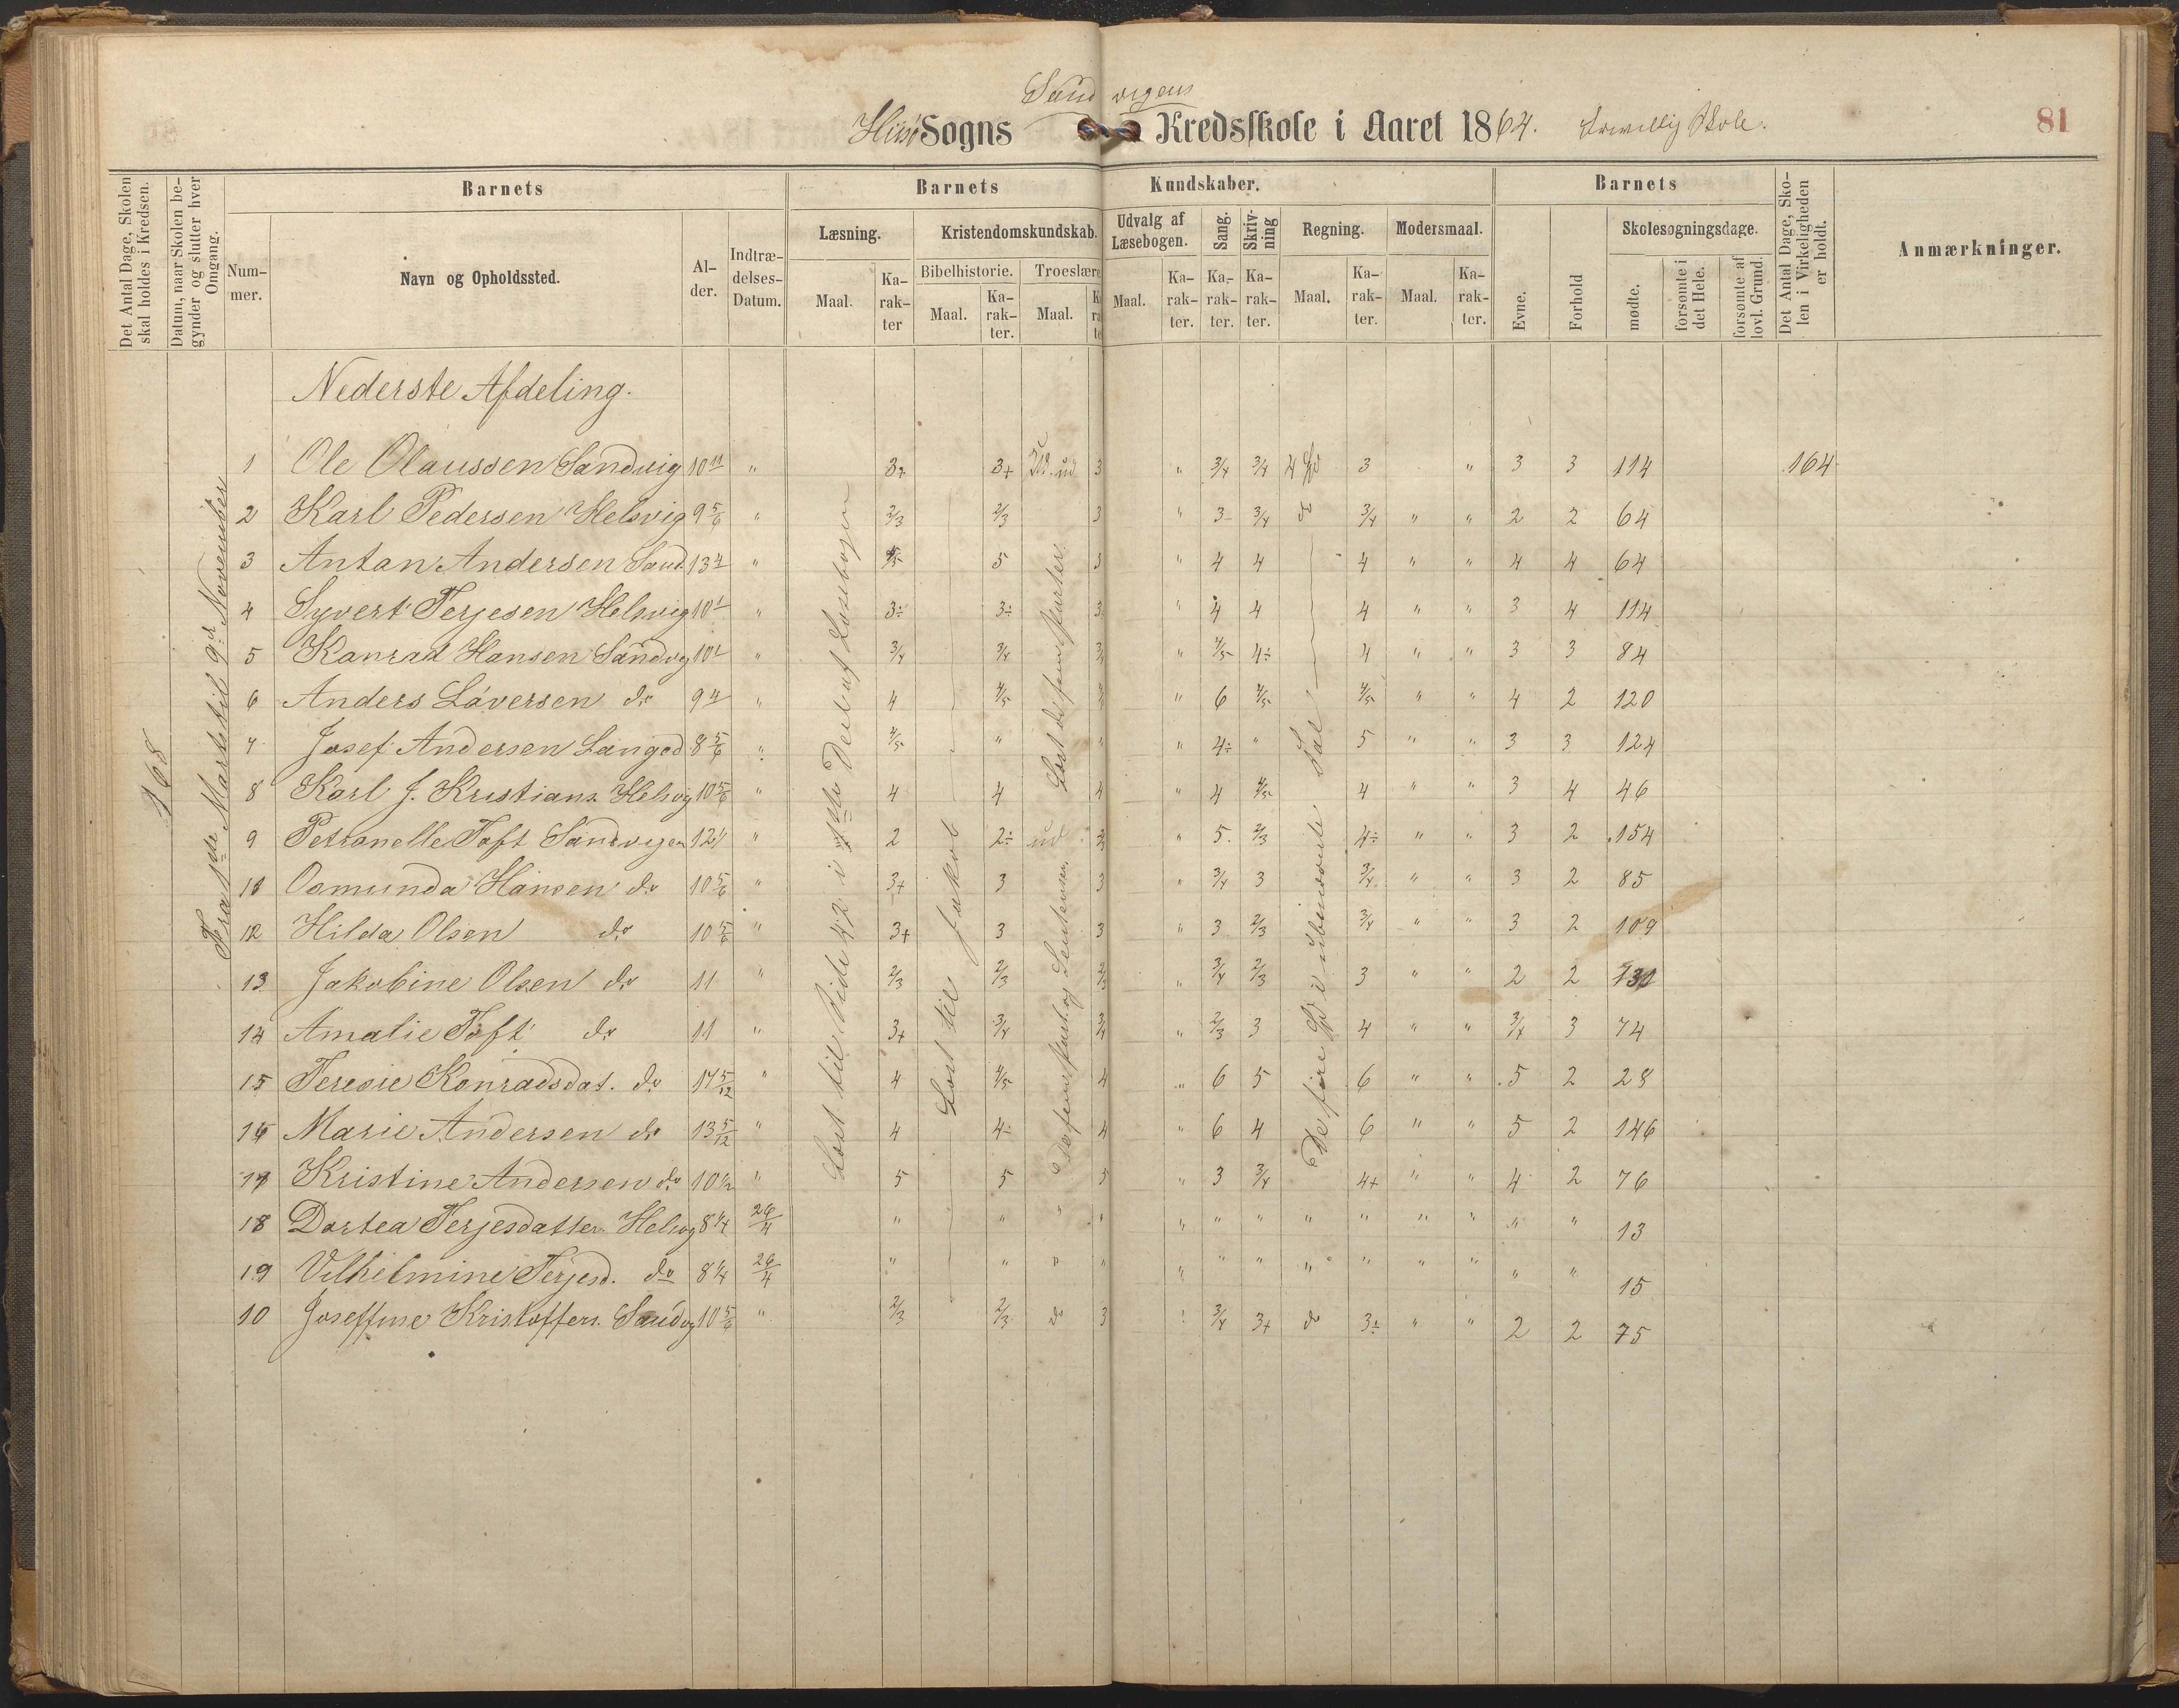 Sandvigens
Hisø Sogns Kredsskole i Aaret 1864. frivillig Skole. 81
Det Antal Dage, Skolen skal holdes i Kredsen.
Datum, naar Skolen begynder og slutter hver Omgang.
Barnets
Nummer.
Navn og Opholdssted.
Alder.
Indtrædelses-Datum.
Barnets Kundskaber.
Læsning.
Maal. Karakter
Kristendomskundskab.
Bibelhistorie. Troeslære
Maal. Karakter. Maal.
Udvalg af Læsebogen.
Maal. Karakter.
Sang. Karakter.
Skrivning Karakter.
Regning. Maal. Karakter.
Modersmaal. Maal. Karakter.
Barnets
Evne. Forhold
Skolesøgningsdage.
mødte. forsømte i det Hele. forsømte af lovl. Grund.
Det Antal Dage, Skolen i Virkeligheden er holdt.
Anmærkninger.
168
Fra 1ste Marts til 9de November
Læst til Side 42 i 1ste Deel af Læsebogen
Læst til Jakob
Læst de fem Parter
De fem Part. og Sentenser
De fire Sp. i ubenævnte Tal
Nederste Afdeling.
1 Ole Olaussen Sandvig 10 11 " 3+ 3+ ud 3 " 3/4 3/4 4 Sp 3 " 3 3 114 164
2 Karl Pedersen Helsvig 9 5/6 " 2/3 2/3 3 " 3- 3/4 do 3/4 " " 2 2 64
3 Antan Andersen Sand 13 " 4/5 5 3 " 4 4 4 " " 4 4 64
4 Syvert Terjesen Helsvig 10 " 3÷ 3÷ 3 " 4 4 4 " " 3 4 114
5 Konrad Hansen Sandvg 10 " 3/4 3/4 3/4 " 4/5 4÷ 4 " " 3 3 84
6 Anders Laversen do 9 " 4 4/5 " 6 4/5 4/5 " " 4 2 120
7 Josef Andersen Langød 8 5/6 " 4/5 " " " 4÷ " 5 " " 3 3 124
8 Karl J. Kristians. Helsvg 10 5/6 " 4 4 4 " 4 4/5 4 " " 3 4 46
9 Petronelle Toft Sandvigen 12 " 2 2÷ ud " 5. 2/3 4÷ " " 3 2 154
11 Osmunda Hansen do 10 5/6 " 3+ 3 3 " 3/4 3 3/4 " " 3 2 85
12 Hilda Olsen do 10 5/6 " 3+ 3 3 " 3 2/3 3/4 " " 3 2 109
13 Jakobine Olsen do 11 " 2/3 2/3 2/3 " 3/4 2/3 3 " " 2 2
14 Amalie Toft do 11 " 3+ 3/4 3/4 " 2/3 3 4 " " 3/4 3 74
15 Teresie Konradsdat. do " 4 4/5 4 " 6 5 6 " " 5 2 28
16 Marie Andersen do 13 5/12 " 4 4÷ 4 " 6 4 6 " " 5 2 146
17 Kristine Andersen do 10 1/2 " 5 5 5 " 3 3/4 4+ " " 4 2 76
18 Dortea Terjesdatter Helsvg 8 1/4 26/4 " " " " " " " " " " " " " 13
19 Vilhelmine Terjesd. do 8 1/4 26/4 " " " " " " " " " " " " " 15
10 Joseffine Kristoffers. Sandvg 10 5/6 " 2/3 2/3 do 3 " 3/4 3+ do 3÷ " " 2 2 75